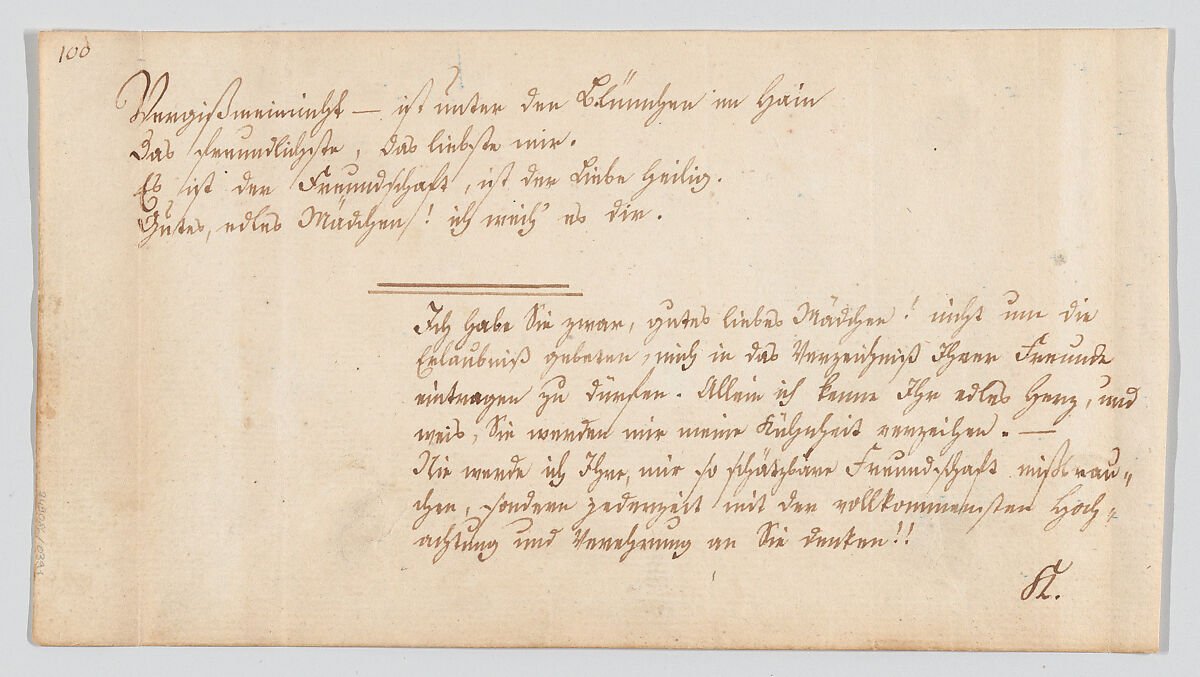 100
Vergißmeinnicht — ist unter den Blümchen im Hain
Das freundlichste, das liebste mir.
Es ist der Freundschaft, ist der Liebe heilig.
Gutes, edles Mädchen! ich weih' es dir.
Ich habe Sie zwar, gutes liebes Mädchen! nicht um die
Erlaubniß gebeten, mich in das Verzeichniß Ihrer Freunde
eintragen zu dürfen. Allein ich kenne Ihr edles Herz, und
weis, Sie werden mir meine Kühnheit verzeihen. —
Nie werde ich Ihre, mir so schätzbare Freundschaft mißbrau-
chen, sondern jederzeit mit der vollkommensten Hoch-
achtung und Verehrung an Sie denken!!
K.